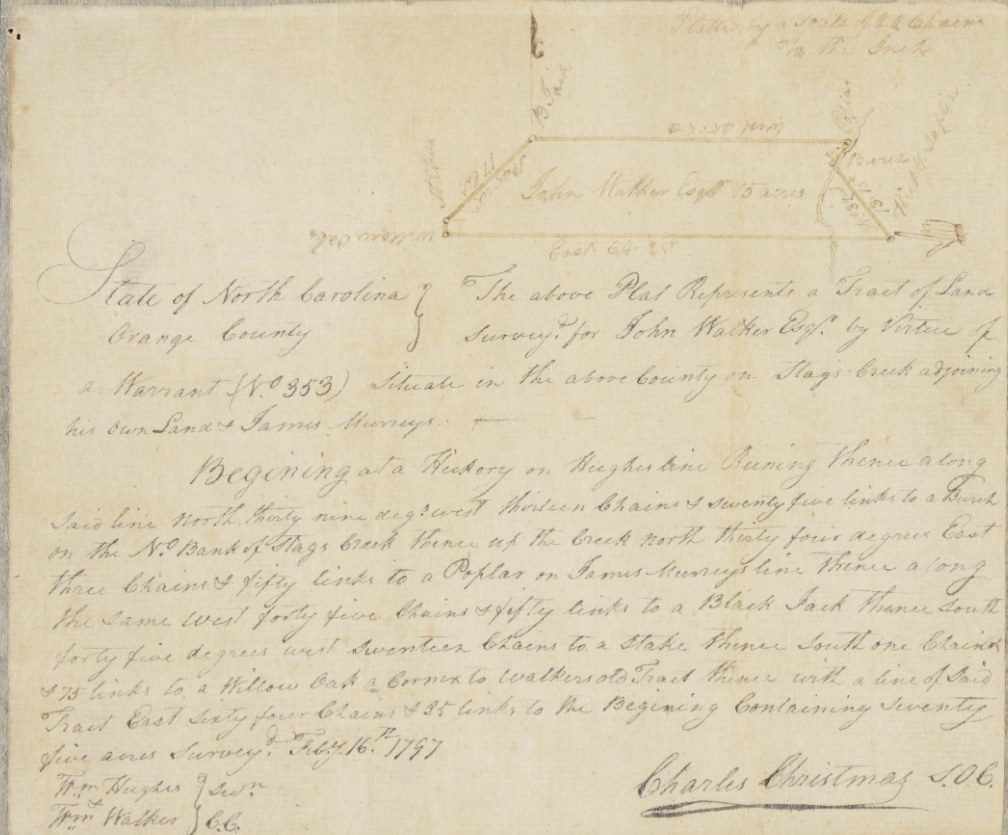 Platted by a scale of 22 Chains
to the Inch
B Jack
Poplar
West 45:50
Burch
Hickory
John Walker Esqr. 75 acres
Willow Oak
East 64 25
State of North Carolina } The above Plat Represents a Tract of Land
Orange County survey.d for John Walker Esqr. by Virtue of
a Warrant (No. 353) situate in the above County on Stags Creek adjoining
his own Land & James Murreys. —
Begining at a Hickory on Hughes line Runing thence along
said line north thirty nine degs. west thirteen Chains & seventy five links to a Burch
on the No. Bank of Stags Creek thence up the Creek north thirty four degrees East
three Chains & fifty links to a Poplar on James Murreys line thence along
the same west forty five Chains & fifty links to a Black Jack thence South
forty five degrees west seventeen Chains to a stake thence South one Chain
& 75 links to a Willow Oak a Corner to Walkers old Tract thence with a line of Said
Tract East sixty four Chains & 25 links to the Begining Containing Seventy
five acres Survey.d Feby. 16.th 1797
Wm Hughes } Swn
Wm Walker } C.C.
Charles Christmas S.O.C.